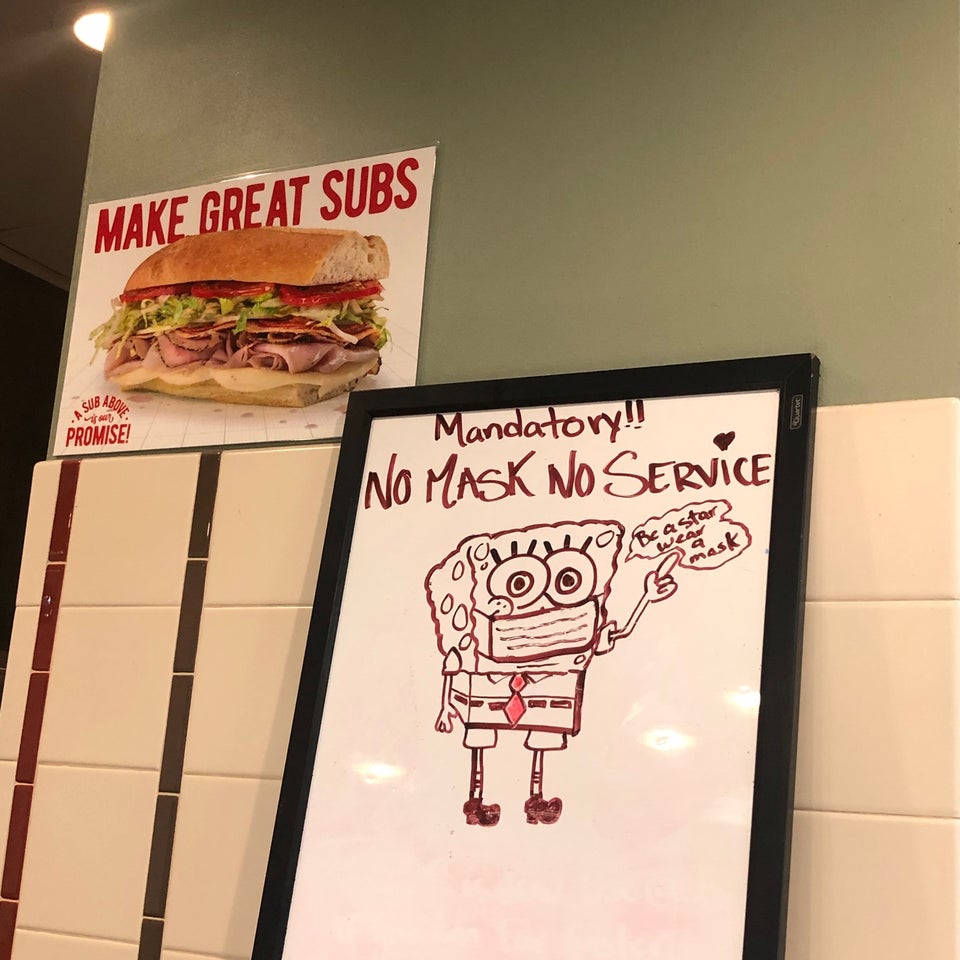 MAKE GREAT SUBS
·A SUB ABOVE·
is our
PROMISE!
Mandatory!!
NO MASK NO SERVICE
Be a star
wear
a
mask
Quartet